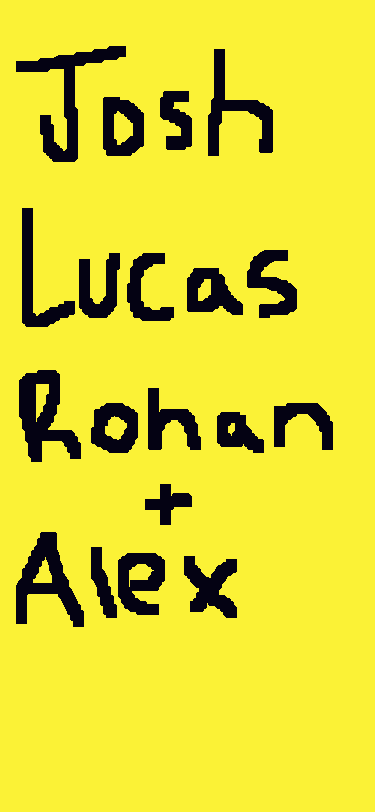 Josh
Lucas
Rohan
+
Alex